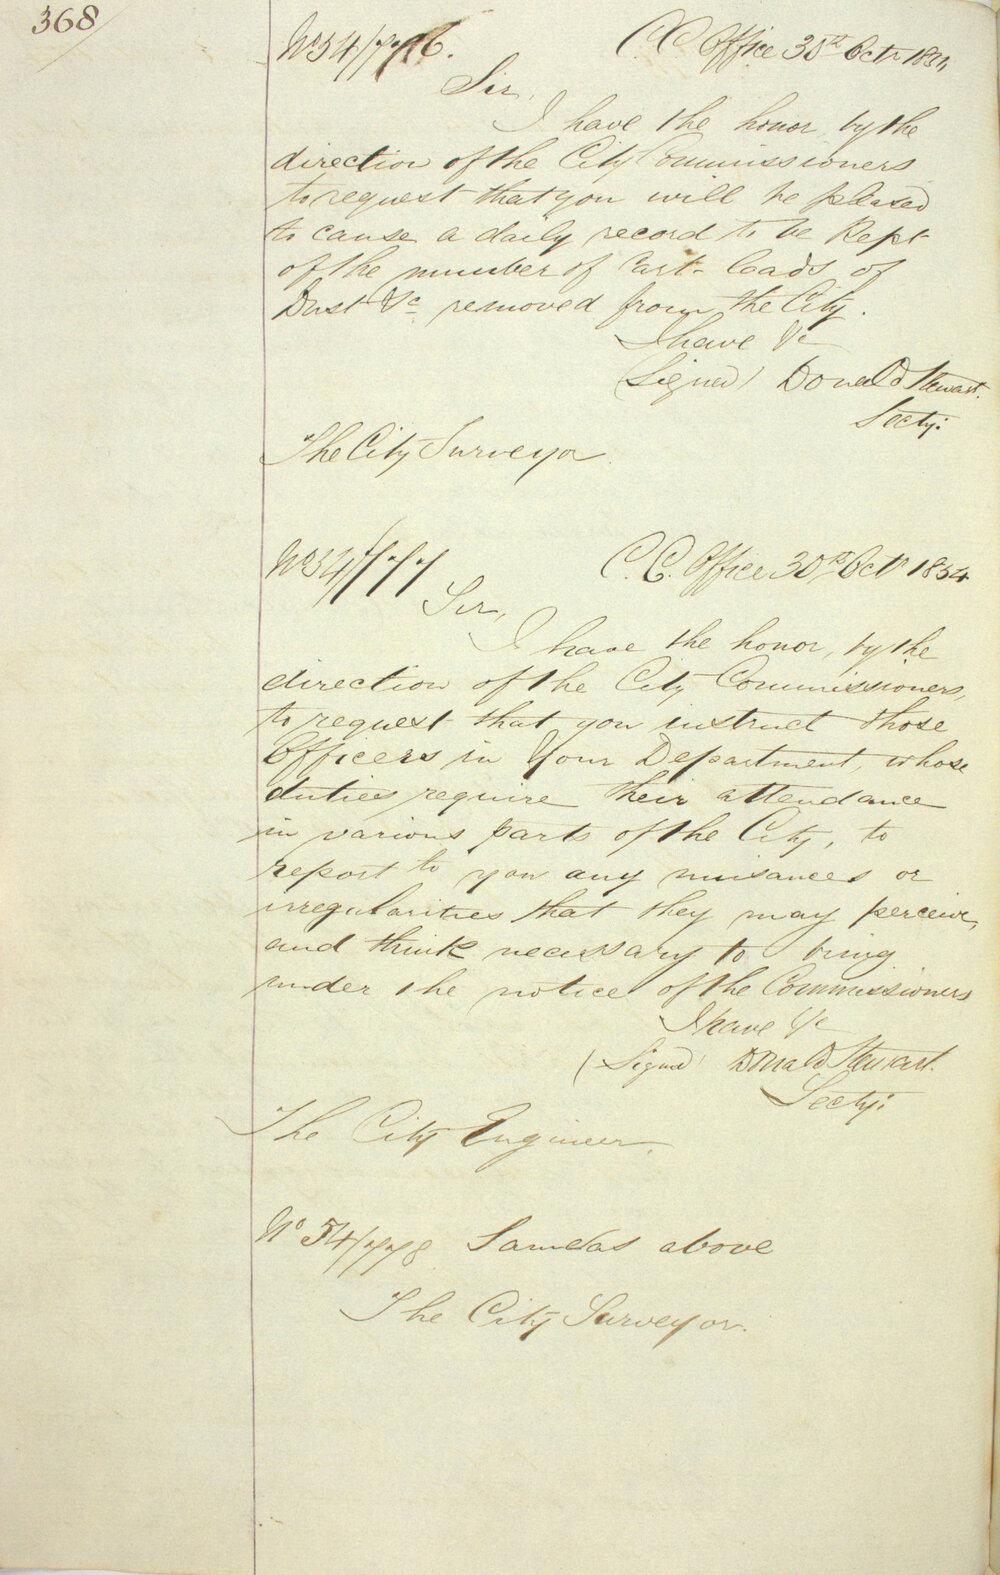 368
No 54/776. C.C. Office 30th Octr 1854
Sir,
I have the honor, by the
direction of the City Commissioners
to request that you will be pleased
to cause a daily record to be Kept
of the number of Cart-loads of
Dust &c removed from the City.
I have &c
(Signed) Donald Stewart.
Secty:
The City Surveyor
No 54/777 C.C. Office 30th Octr 1854
Sir,
I have the honor, by the
direction of the City Commissioners,
to request that you instruct those
Officers in Your Department, whose
duties require their attendance
in various parts of the City, to
report to you any nuisances or
irregularities that they may perceive,
and think necessary to bring
under the notice of the Commissioners
I have &c
(Signed) Donald Stewart.
Secty:
The City Engineer.
No 54/778 Same as above
The City Surveyor.